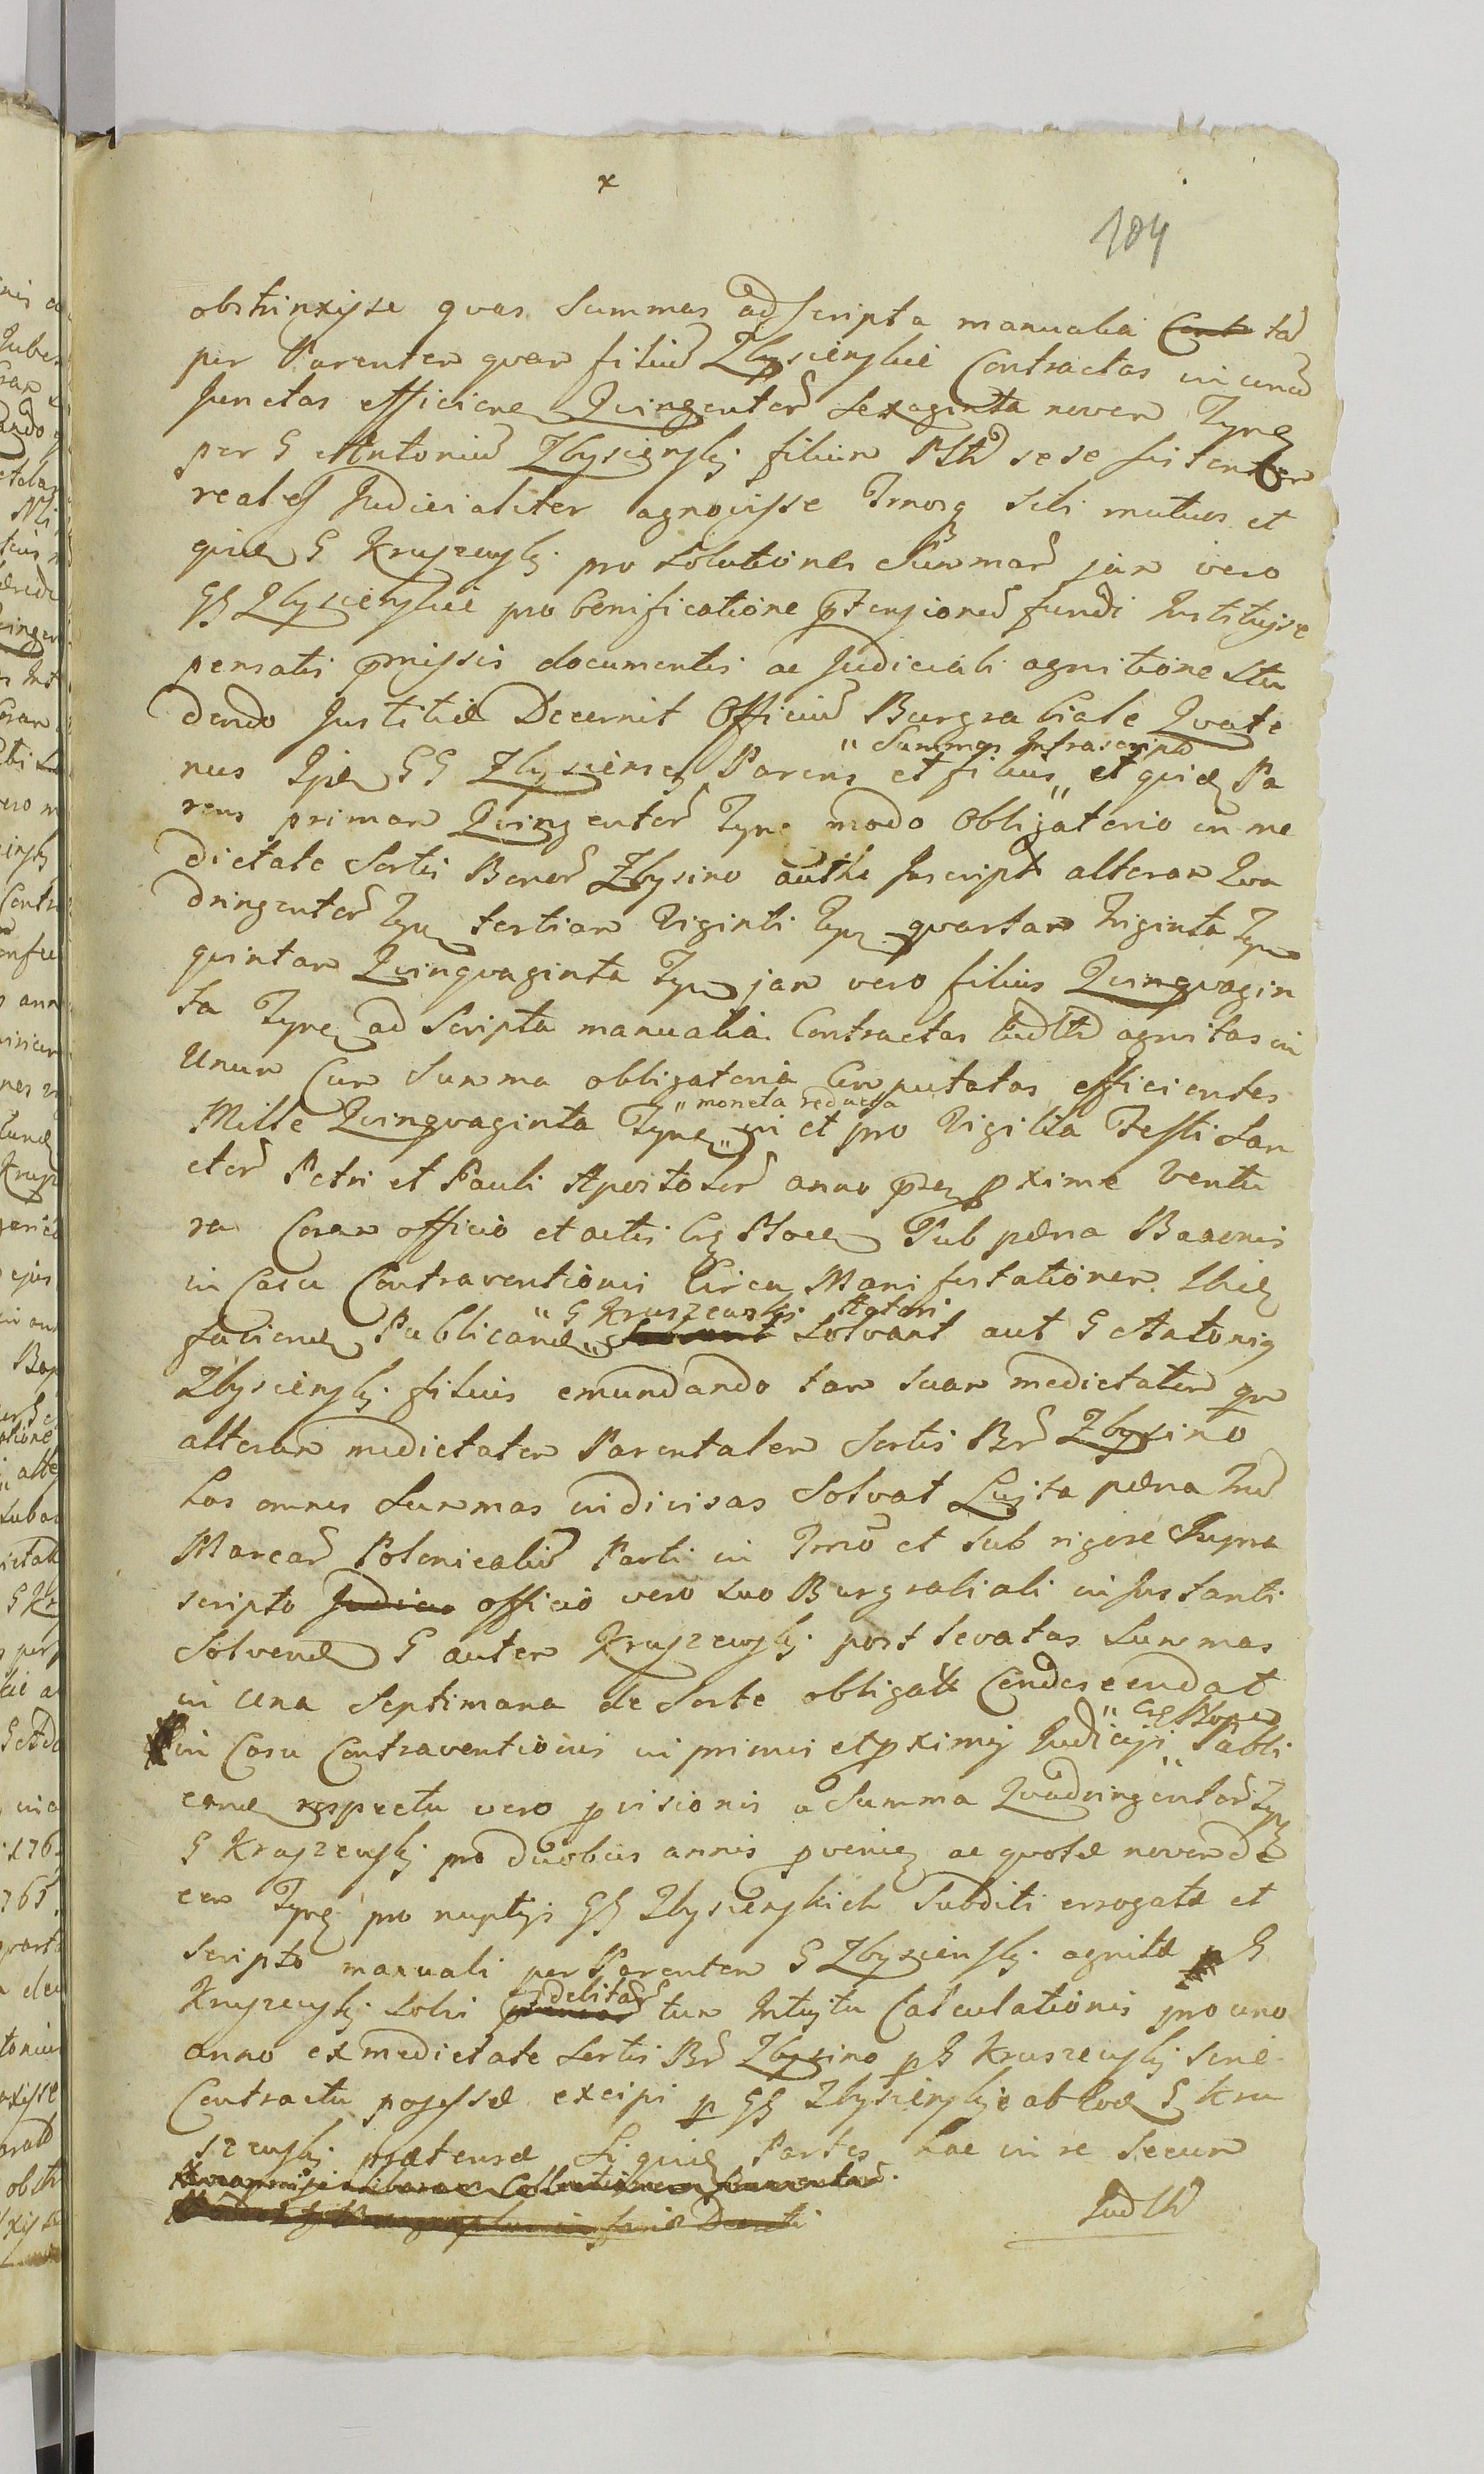 x
104
obstrinxisse quas Summas ad scripta manualia tam
per Parentem quam filium Zbyszienskie Contractas in unum
Junctas efficiend Quingentar Sexaginta novem Tynf
per G Antonium Zbyscienski filium sese sistentem
reales Judicialiter agnovisse Tmosq sibi mutuos et
quid G Kruszewski pro Solutiones Summar jam vero
GG Zbyscienskie pro bonificatione ptensionum fundi Instituisse
pensatis pmissis documentis ac Judiciali agnitione Stu
dendo Justitiæ Decernit Officium Burgrabiale Quate
" Summas Infrascript
nus Ipse GG Zbysciensc Parens et filius " et quid Pa
rens primam Quingentar Tynf modo Obligatorio in me
dietate Sortis Bonor Zbysino authe Inscript alteram Qua
dringentar Tynf tertiam Viginti Tynf quartam Triginta Tynf
quintam Quinquaginta Tynf jam vero filius Quinquagin
ta Tynf ad Scripta manualia Contractas Judltr agnitas in
Unum Cum Summa obligatoria Computatas efficientes
" moneta reducta
Mille Quinquaginta Tynf " in et pro Vigilia Festi San
ctor Petri et Pauli Apostolor anno pnti pxime Ventu
ra Coram officio et actis Sub pæna Bannonis
in Casu Contraventionis Circa Manifestationem Ibid
" G Kruszewski Actori
faciend Publicand " Solvant aut G Antonig
Zbyscienski filius emundando tam suam medietatem qm
alteram medietatem Parentalem Sortis Br Zbysino
has omnes Summas indivisas Solvat Luita pæna
Marcar Polonicalium Parti in Tmo et sub rigore Supra
scripto Judicio officio vero suo Burgrabiali in Instanti
Solvend G autem Kruszewski post levatas Summas
in Una Septimana de Sorte obligatt Condescendat
in Casu Contraventionis in primis et pximis Judicijs " Publi
cand respectu vero pvisionis a Summa Quadringentar Tynf
G Kruszewski pro duobus annis pvenien ac quotæ novemde
cem Tynf pro nuptijs GG Zbyscienskich Subditi errogatæ et
Scripto manuali per Parentem G Zbyscienski agnitæ p G
debitar
Kruszewski Solvi tum Intuitu Calculationis pro uno
anno ex medietate Sortis Br Zbysino p G Kruszewski sine
Contractu possessæ excipi p GG Zbyscienskie ab Eod G Kru
szewski prætensæ Siquid Partes hac in re Secum
Judltr